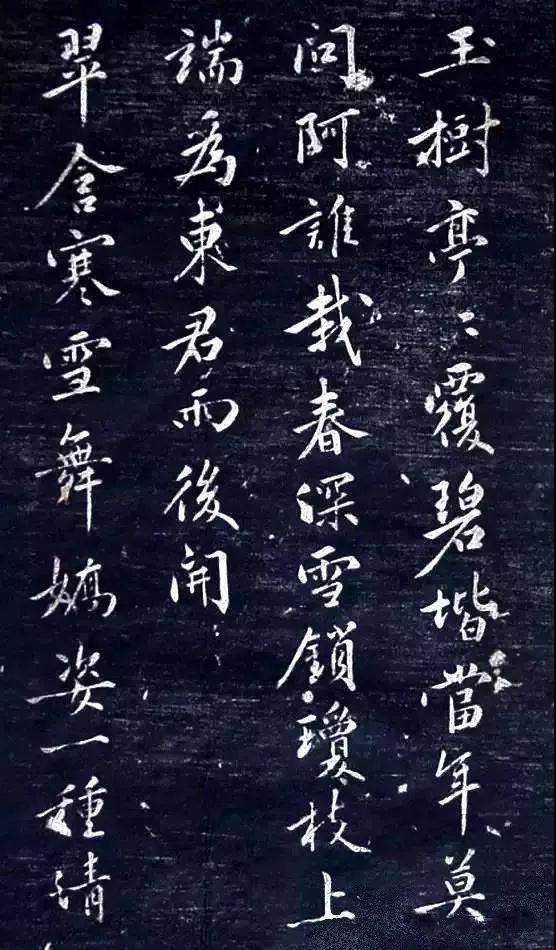 玉樹亭〻覆碧堦當年莫
問阿誰栽春深雪鎖瓊枝上
端爲東君雨後開
翠含寒雪舞嬌姿一種清